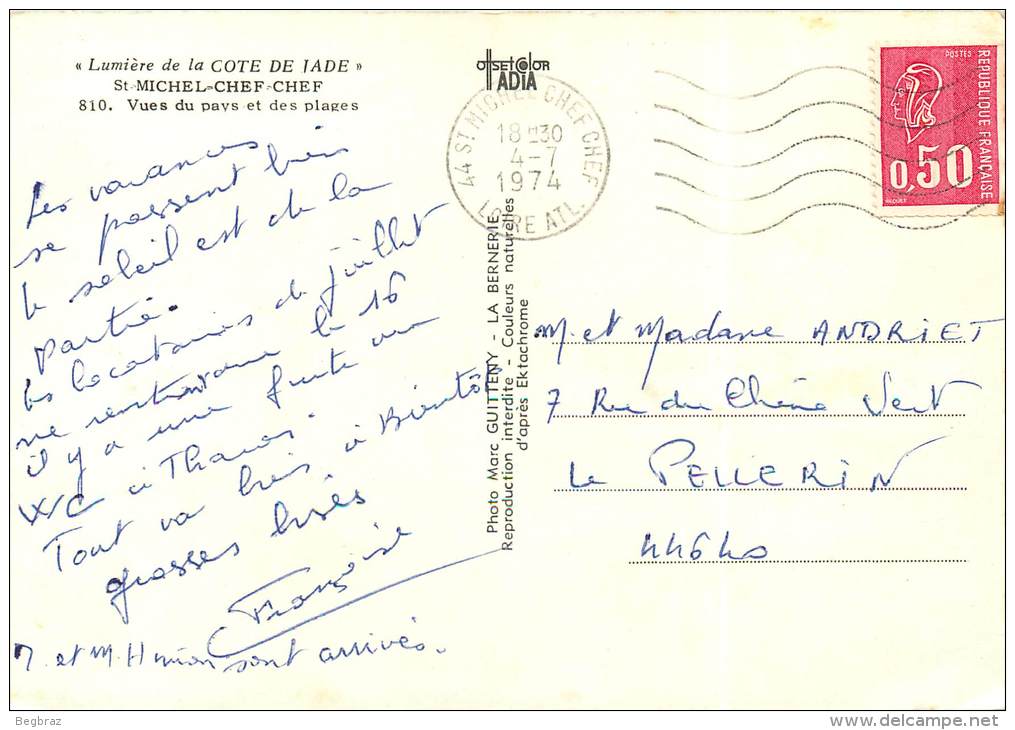 « Lumière de la COTE DE JADE »
St-MICHEL-CHEF-CHEF
810. Vues du pays et des plages
Les vacances
se passent bien
le soleil est de la
partie.
les locataires de juillet
ne rentraient le 16
il y a une fuite au
WC à Tharos.
Tout va bien, à Bientôt
grosses bises
Françoise
M et M. sont arrivés.
OffSET COLOR
ADIA
44 ST MICHEL CHEF CHEF
18 H30
4-7
1974
LOIRE ATL.
Photo Marc GUITTENY - LA BERNERIE
Reproduction interdite - Couleurs naturelles
d'après Ektachrome
POSTES
REPUBLIQUE FRANÇAISE
0,50
M. et Madame ANDRIET
7 Rue du Chêne Vert
Le PELLERIN
44640
Begbraz
www.delcampe.net